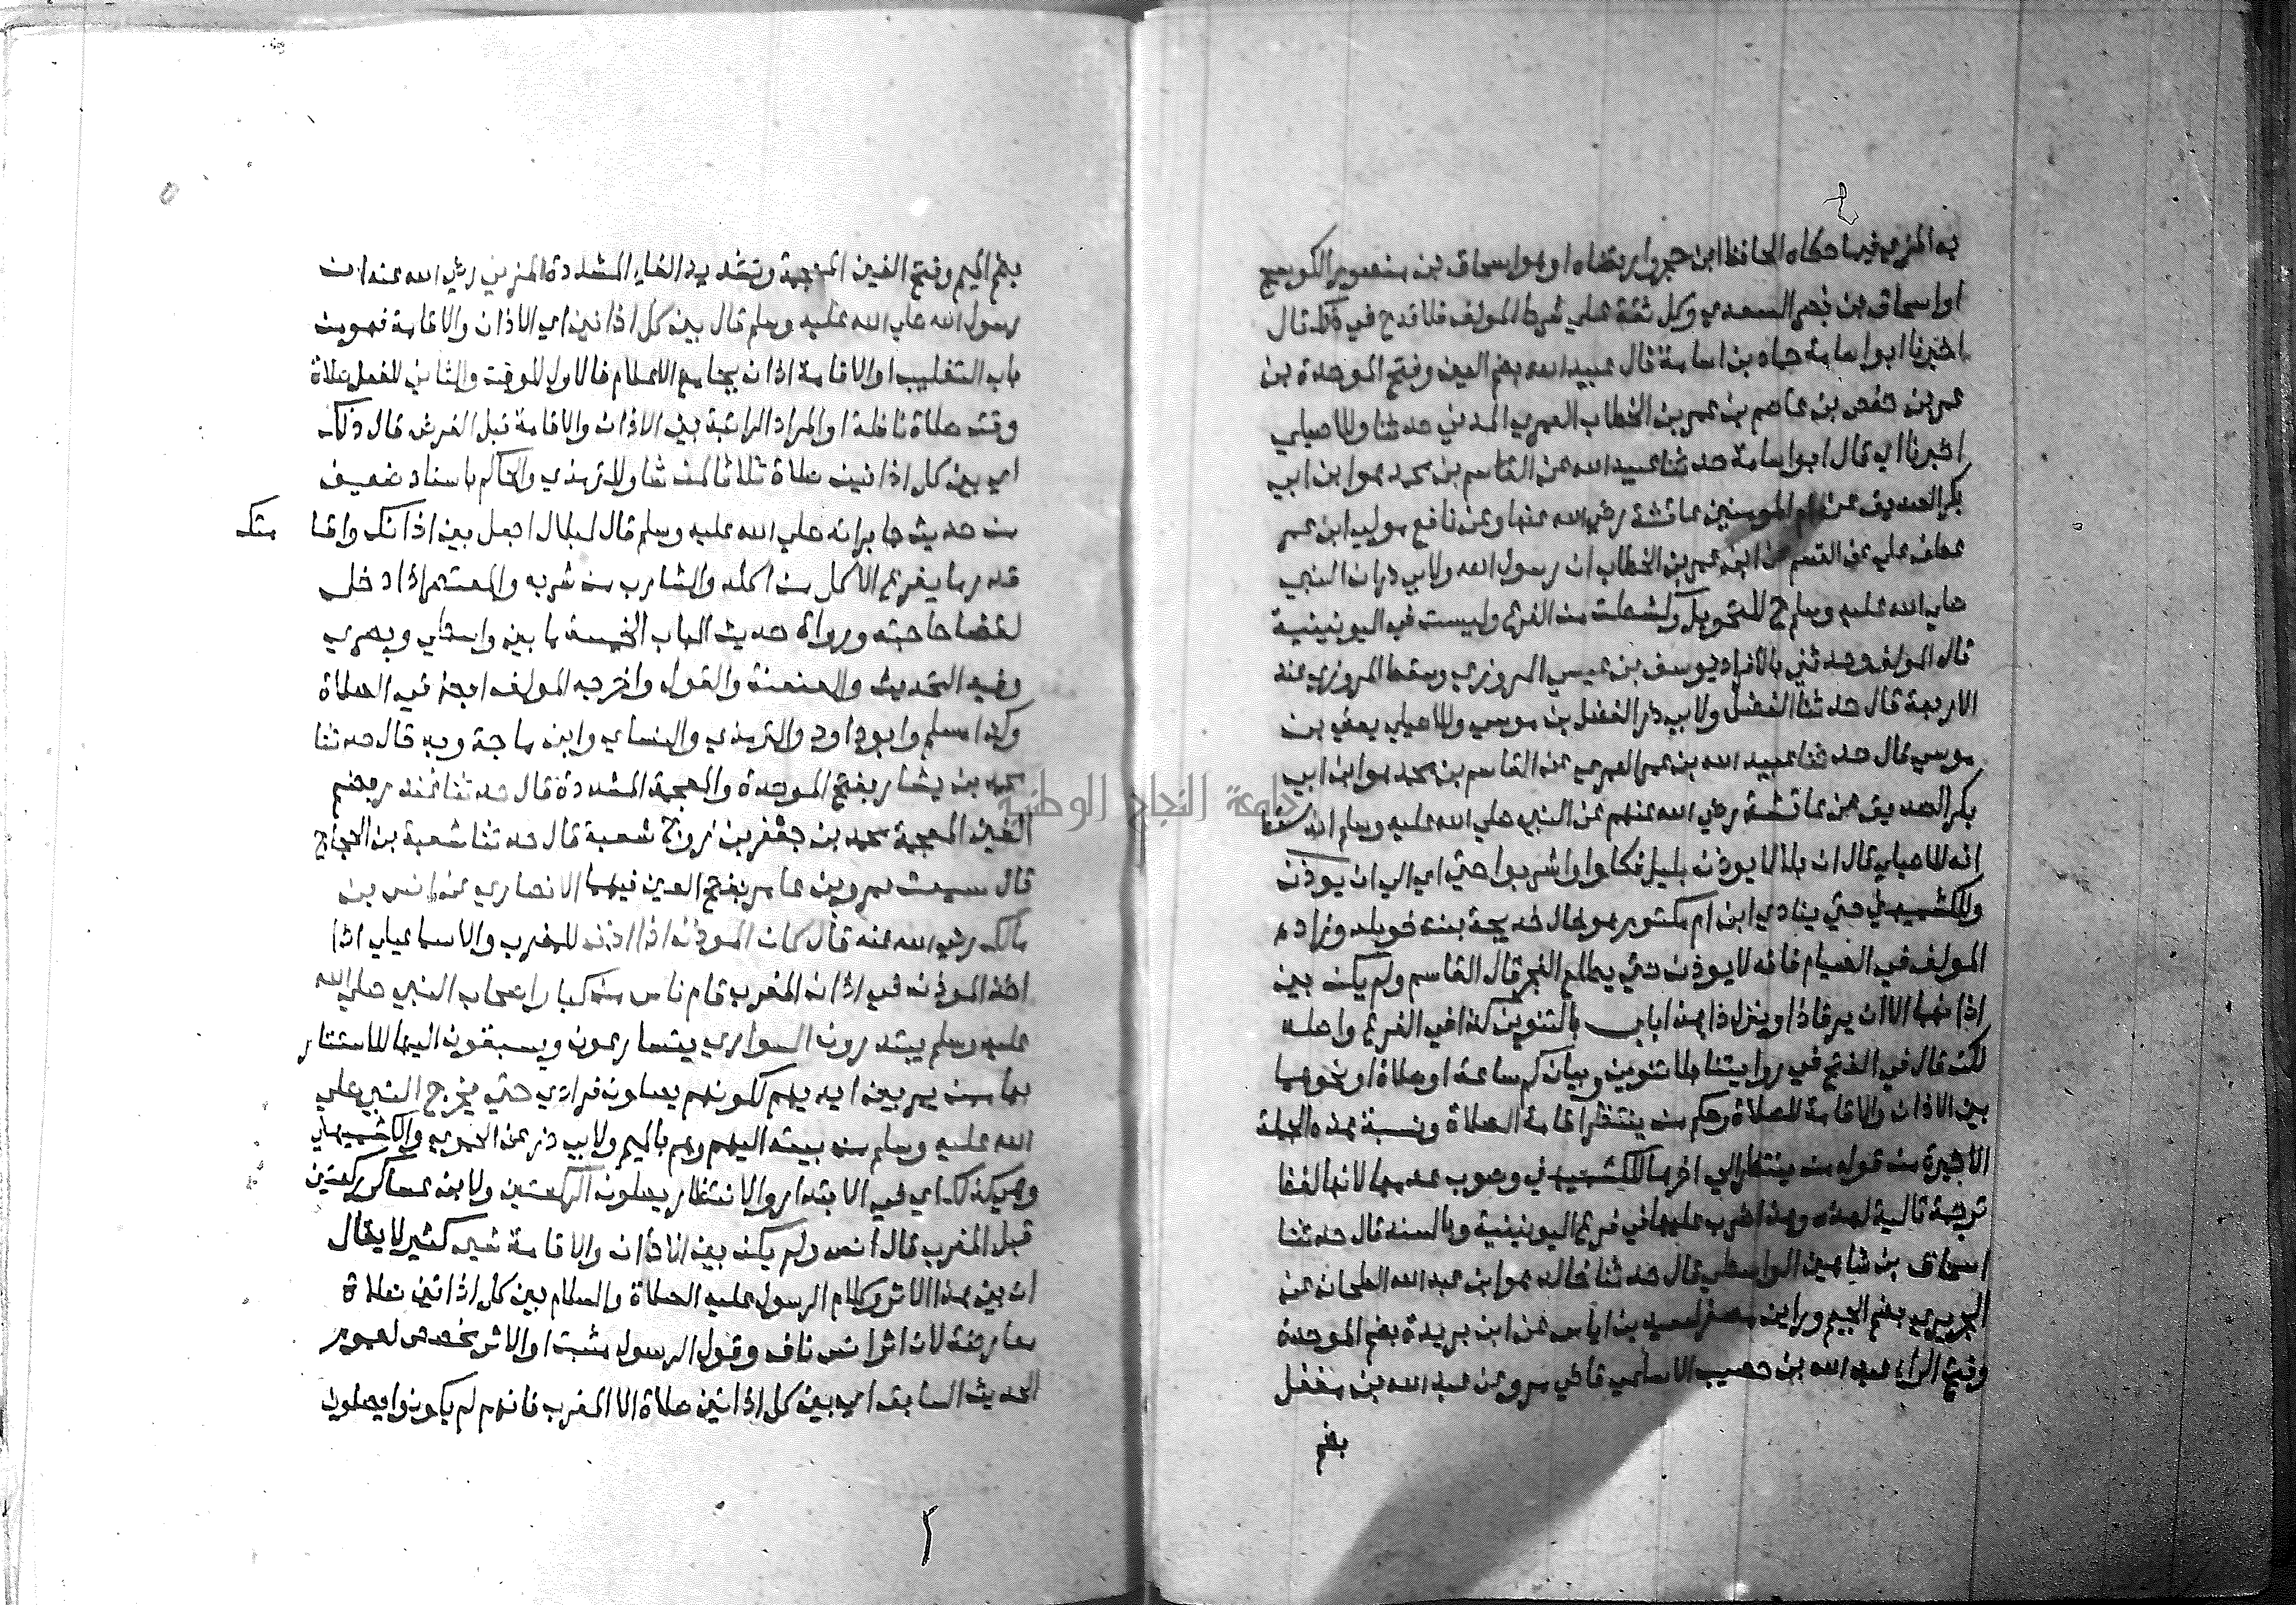 به المزي فيما حكاه الحافظ ابن حجر وارتضاه او هو اسحاق بن منصور الكوسج
او اسحاق بن نصر السعدي وكل ثقة على شرط المولف فلا قدح في ذلك قال
اخبرنا ابو اسامة حماد بن اسامة قال عبيد الله بضم العين وفتح الموحدة بن
عمر بن حفص بن عاصم بن عمر بن الخطاب العمري المدني حدثنا وللاصيلي
اخبرنا اي قال ابو اسامة حدثنا عبيد الله عن القاسم بن محمد هو ابن ابي
بكر الصديق عن ام المومنين عائشة رضي الله عنها وعن نافع مولي ابن عمر
عطف علي عن القسم عن ابن عمر بن الخطاب ان رسول الله ولابي ذر ان النبي
صلي الله عليه وسلم ح للتحويل وكشطت من الفرع وليست في اليونينية
قال المولف وحدثني بالافراد يوسف بن عيسي المروزي وسقط المروزي عند
الاربعة قال حدثنا الفضل ولابي ذر الفضل بن موسي وللاصيلي يعني بن
موسي قال حدثنا عبيد الله بن عمر العمري عن القاسم بن محمد هو ابن ابي
بكر الصديق عن عائشة رضي الله عنهم عن النبي صلي الله عليه وسلم انه سقط
انه للاصيلي قال ان بلالا يوذن بليل فكلوا واشربوا حتي اي الي ان يوذن
وللكشميهني حتي ينادي ابن ام مكتوم هو خال خديجة بنت خويلد وزاده
المولف في الصيام فانه لا يوذن حتي يطلع الفجر قال القاسم ولم يكن بين
اذانهما الا ان يرقا ذا وينزل ذا هذا باب بالتنوين كذا في الفرع واصله
لكن قال في الفتح في روايتنا بلا تنوين وبيان كم ساعة او صلاة او نحوهما
بين الاذان والاقامة للصلاة وحكم من ينتظر اقامة الصلاة ونسبة هذه الجملة
الاخيرة من قوله من ينتظر الي اخرها للكشميهني وصوب عدمها لانها لفظ
ترجمة تالية لهذه وهذا ضرب عليها في فرع اليونينية وبالسند قال حدثنا
اسحاق بن شاهين الواسطي قال حدثنا خالد هو ابن عبد الله الطحان عن
الجريري بضم الجيم وراين مصغرا سعيد بن اياس عن ابن بريدة بضم الموحدة
وفتح الراء عبد الله بن حصيب الاسلمي قاضي مرو عن عبد الله بن مغفل
بضم
بضم الميم وفتح الغين المعجمة وتشديد الفاء المشددة المزني رضي الله عنه ان
رسول الله صلي الله عليه وسلم قال بين كل اذانين اي الاذان والاقامة فهو من
باب التغليب او الاقامة اذان بجامع الاعلام فالاول للوقت والثاني للفعل صلاة
وقت صلاة نافلة او المراد الراتبة بين الاذان والاقامة قبل الفرض قال ذلك
اي بين كل اذانين صلاة ثلاثا لمن شا وللترمذي والحاكم باسناد ضعيف
من حديث جابر انه صلي الله عليه وسلم قال لبلال اجعل بين اذانك واقا متك
قدر ما يفرغ الاكل من اكله والشارب من شربه والمعتصر اذا دخل
لقضا حاجته ورواة حديث الباب الخمسة ما بين واسطي وبصري
وفيه التحديث والعنعنة والقول واخرجه المولف ايضا في الصلاة
وكذا مسلم وابو داود والترمذي والنساي وابن ماجة وبه قال حدثنا
محمد بن بشار بفتح الموحدة والمعجمة المشددة قال حدثنا غندر بضم
الغين المعجمة محمد بن جعفر بن زوج شعبة قال حدثنا شعبة بن الحجاج
قال سمعت عمرو بن عامر بفتح العين فيهما الانصاري عن انس بن
مالك رضي الله عنه قال كان الموذن اذا اذن للمغرب والاسماعيلي اذا
اخذ الموذن في اذان المغرب قام ناس من كبار اصحاب النبي صلي الله
عليه وسلم يبتدرون السواري يتسارعون ويستبقون اليها للاستتار
بها ممن يمر بين ايديهم لكونهم يصلون فرادي حتي يخرج النبي صلي
الله عليه وسلم من بيته اليهم وهم بالميم ولابي ذر عن الحموي والكشميهني
وهي كذلك اي في الابتدار والانتظار يصلون الركعتين ولابن عساكر ركعتين
قبل المغرب قال انس ولم يكن بين الاذان والاقامة شي كثير لا يقال
ان بين هذا الاثر وكلام الرسول عليه الصلاة والسلام بين كل اذانين صلاة
معارضة لان اثر انس ناف وقول الرسول مثبت او الاثر مخصص لعموم
الحديث السابق اي بين كل اذانين صلاة الا المغرب فانهم لم يكونوا يصلون
جامعة النجاح الوطنية